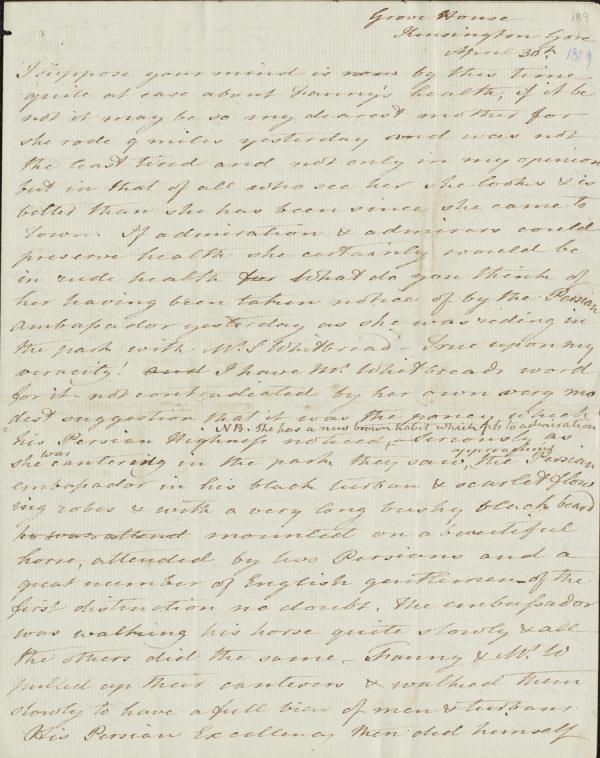 Grove House 189
Kensington Gore
April 30th 1819
I suppose your mind is now by this time
quite at ease about Fanny's health; if it be
not it may be so my dearest mother for
she rode 9 miles yesterday and was not
the least tired and not only in my opinion
but in that of all who see her she looks & is
better than she has been since she came to
Town. If admiration & admirers could
preserve health she certainly would be
in rude health for What do you think of
her having been taken notice of by the Persian
ambassador yesterday as she was riding in
the park with Mr. S Whitbread – True upon my
veracity! and I have Mr Whitbreads word
for it – not contradicted by her own very mo
dest suggestion that it was the poney which
NB. She has a new brown habit which fits to admiration
his Persian Highness noticed – Seriously as
was approaching
she cantering in the park they saw the Persian
embassador in his black turban & scarlet flow
ing robes & with a very long bushy black beard
he was attend mounted on a beautiful
horse, attended by two Persians and a
great number of English gentlemen – of the
first distinction no doubt. The embassador
was walking his horse quite slowly & all
the others did the same – Fanny & Mr. W
pulled up their canterers & walked them
slowly to have a full view of men & turbans
His Persian Excellency then did himself